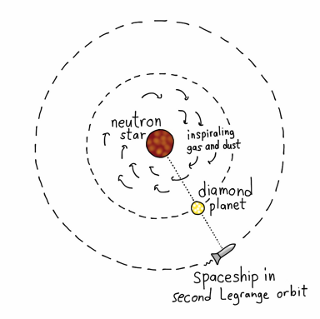 neutron
star
inspiraling
gas and dust
diamond
planet
Spaceship in
second Legrange orbit